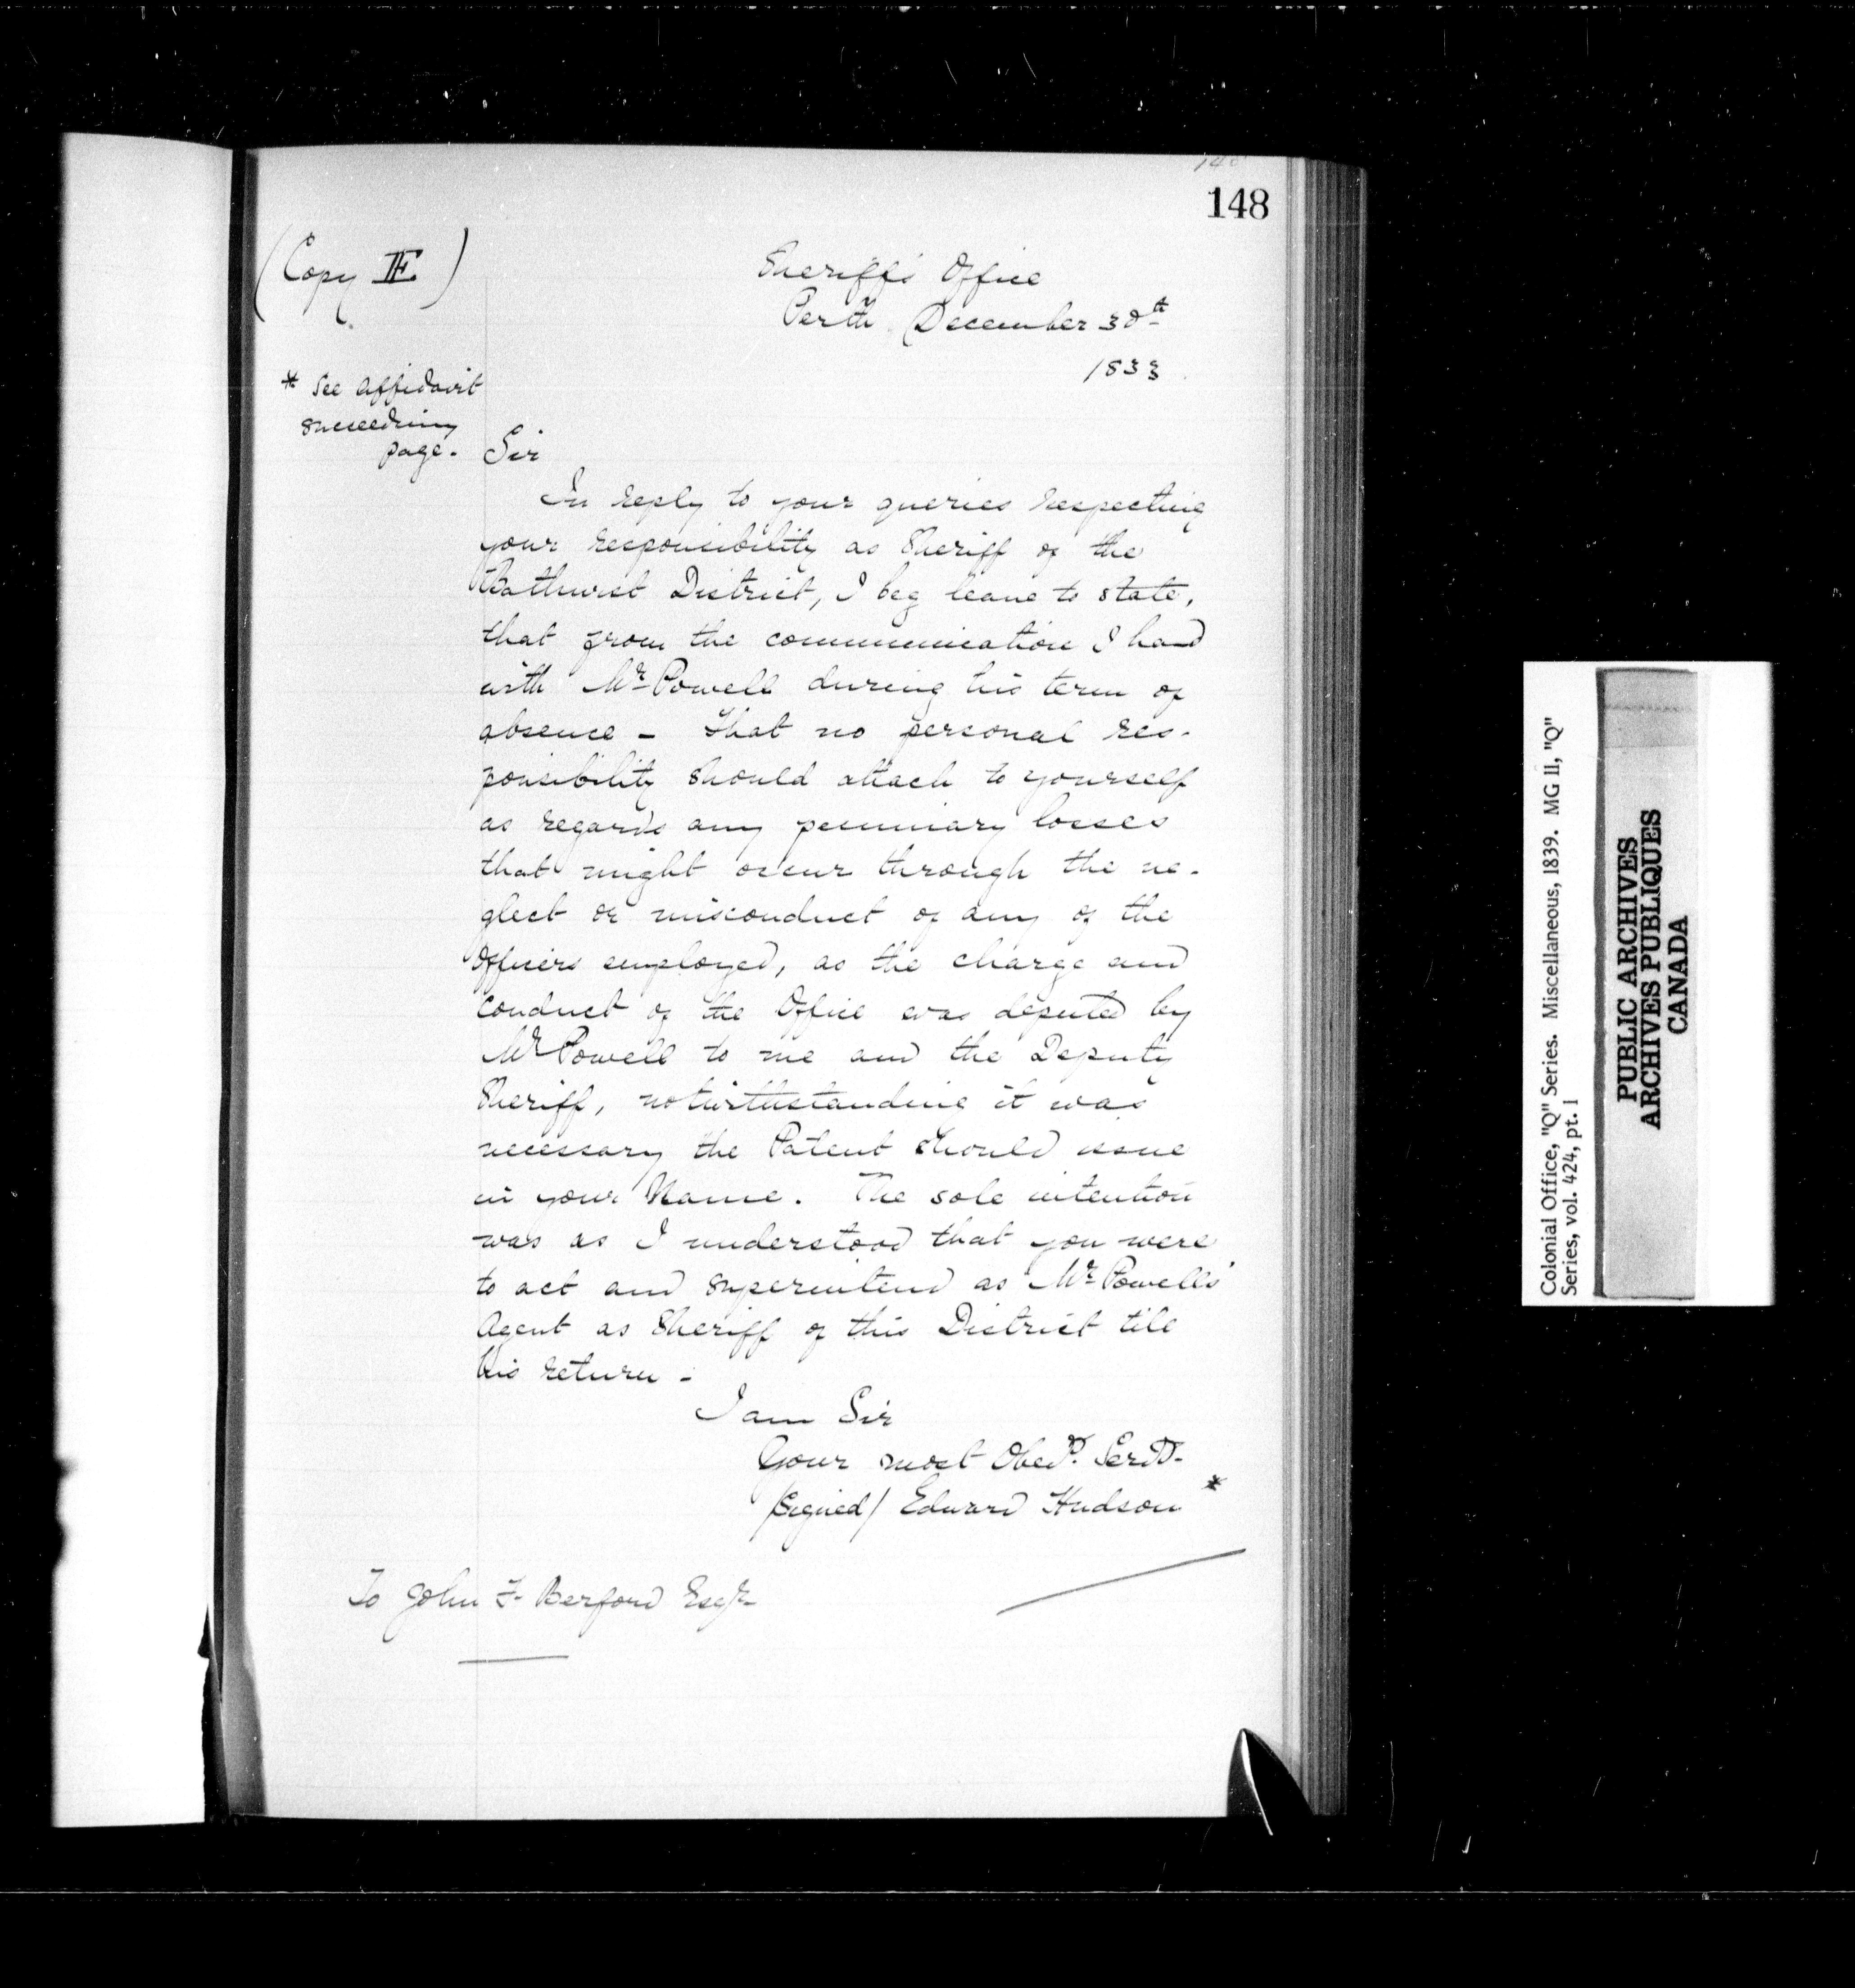 148
(Copy F.)
Sheriff's Office
Perth December 30th
1833
* See affidavit
succeeding
page.
Sir
In reply to your queries respecting
your responsibility as Sheriff of the
Bathurst District, I beg leave to state,
that from the communication I had
with Mr Powell during his term of
absence - that no personal res-
ponsibility should attach to yourself
as regards any pecuniary losses
that might occur through the ne-
glect or misconduct of any of the
Officers employed, as the charge and
conduct of the Office was deputed by
Mr Powell to me and the Deputy
Sheriff, notwithstanding it was
necessary the Patent should issue
in your Name. The sole intention
was as I understood that you were
to act and superintend as Mr Powells'
Agent as Sheriff of this District till
his return -
I am Sir
Your most Obedt. Servt.
/Signed/ Edward Hudson *
To John F. Berford Esqr
Colonial Office, "Q" Series. Miscellaneous, 1839. MG 11, "Q"
Series, vol. 424, pt. 1
PUBLIC ARCHIVES
ARCHIVES PUBLIQUES
CANADA